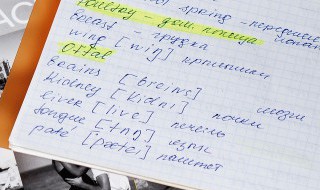 spring -
Poultry - дом. птица
breast - грудка
wing [wiŋ] крылышки
Offal
Brains [breins] мозги
Kidney [kidni] почки
liver [live] печень
tongue [tʌŋ] язык
paté [pætei] паштет